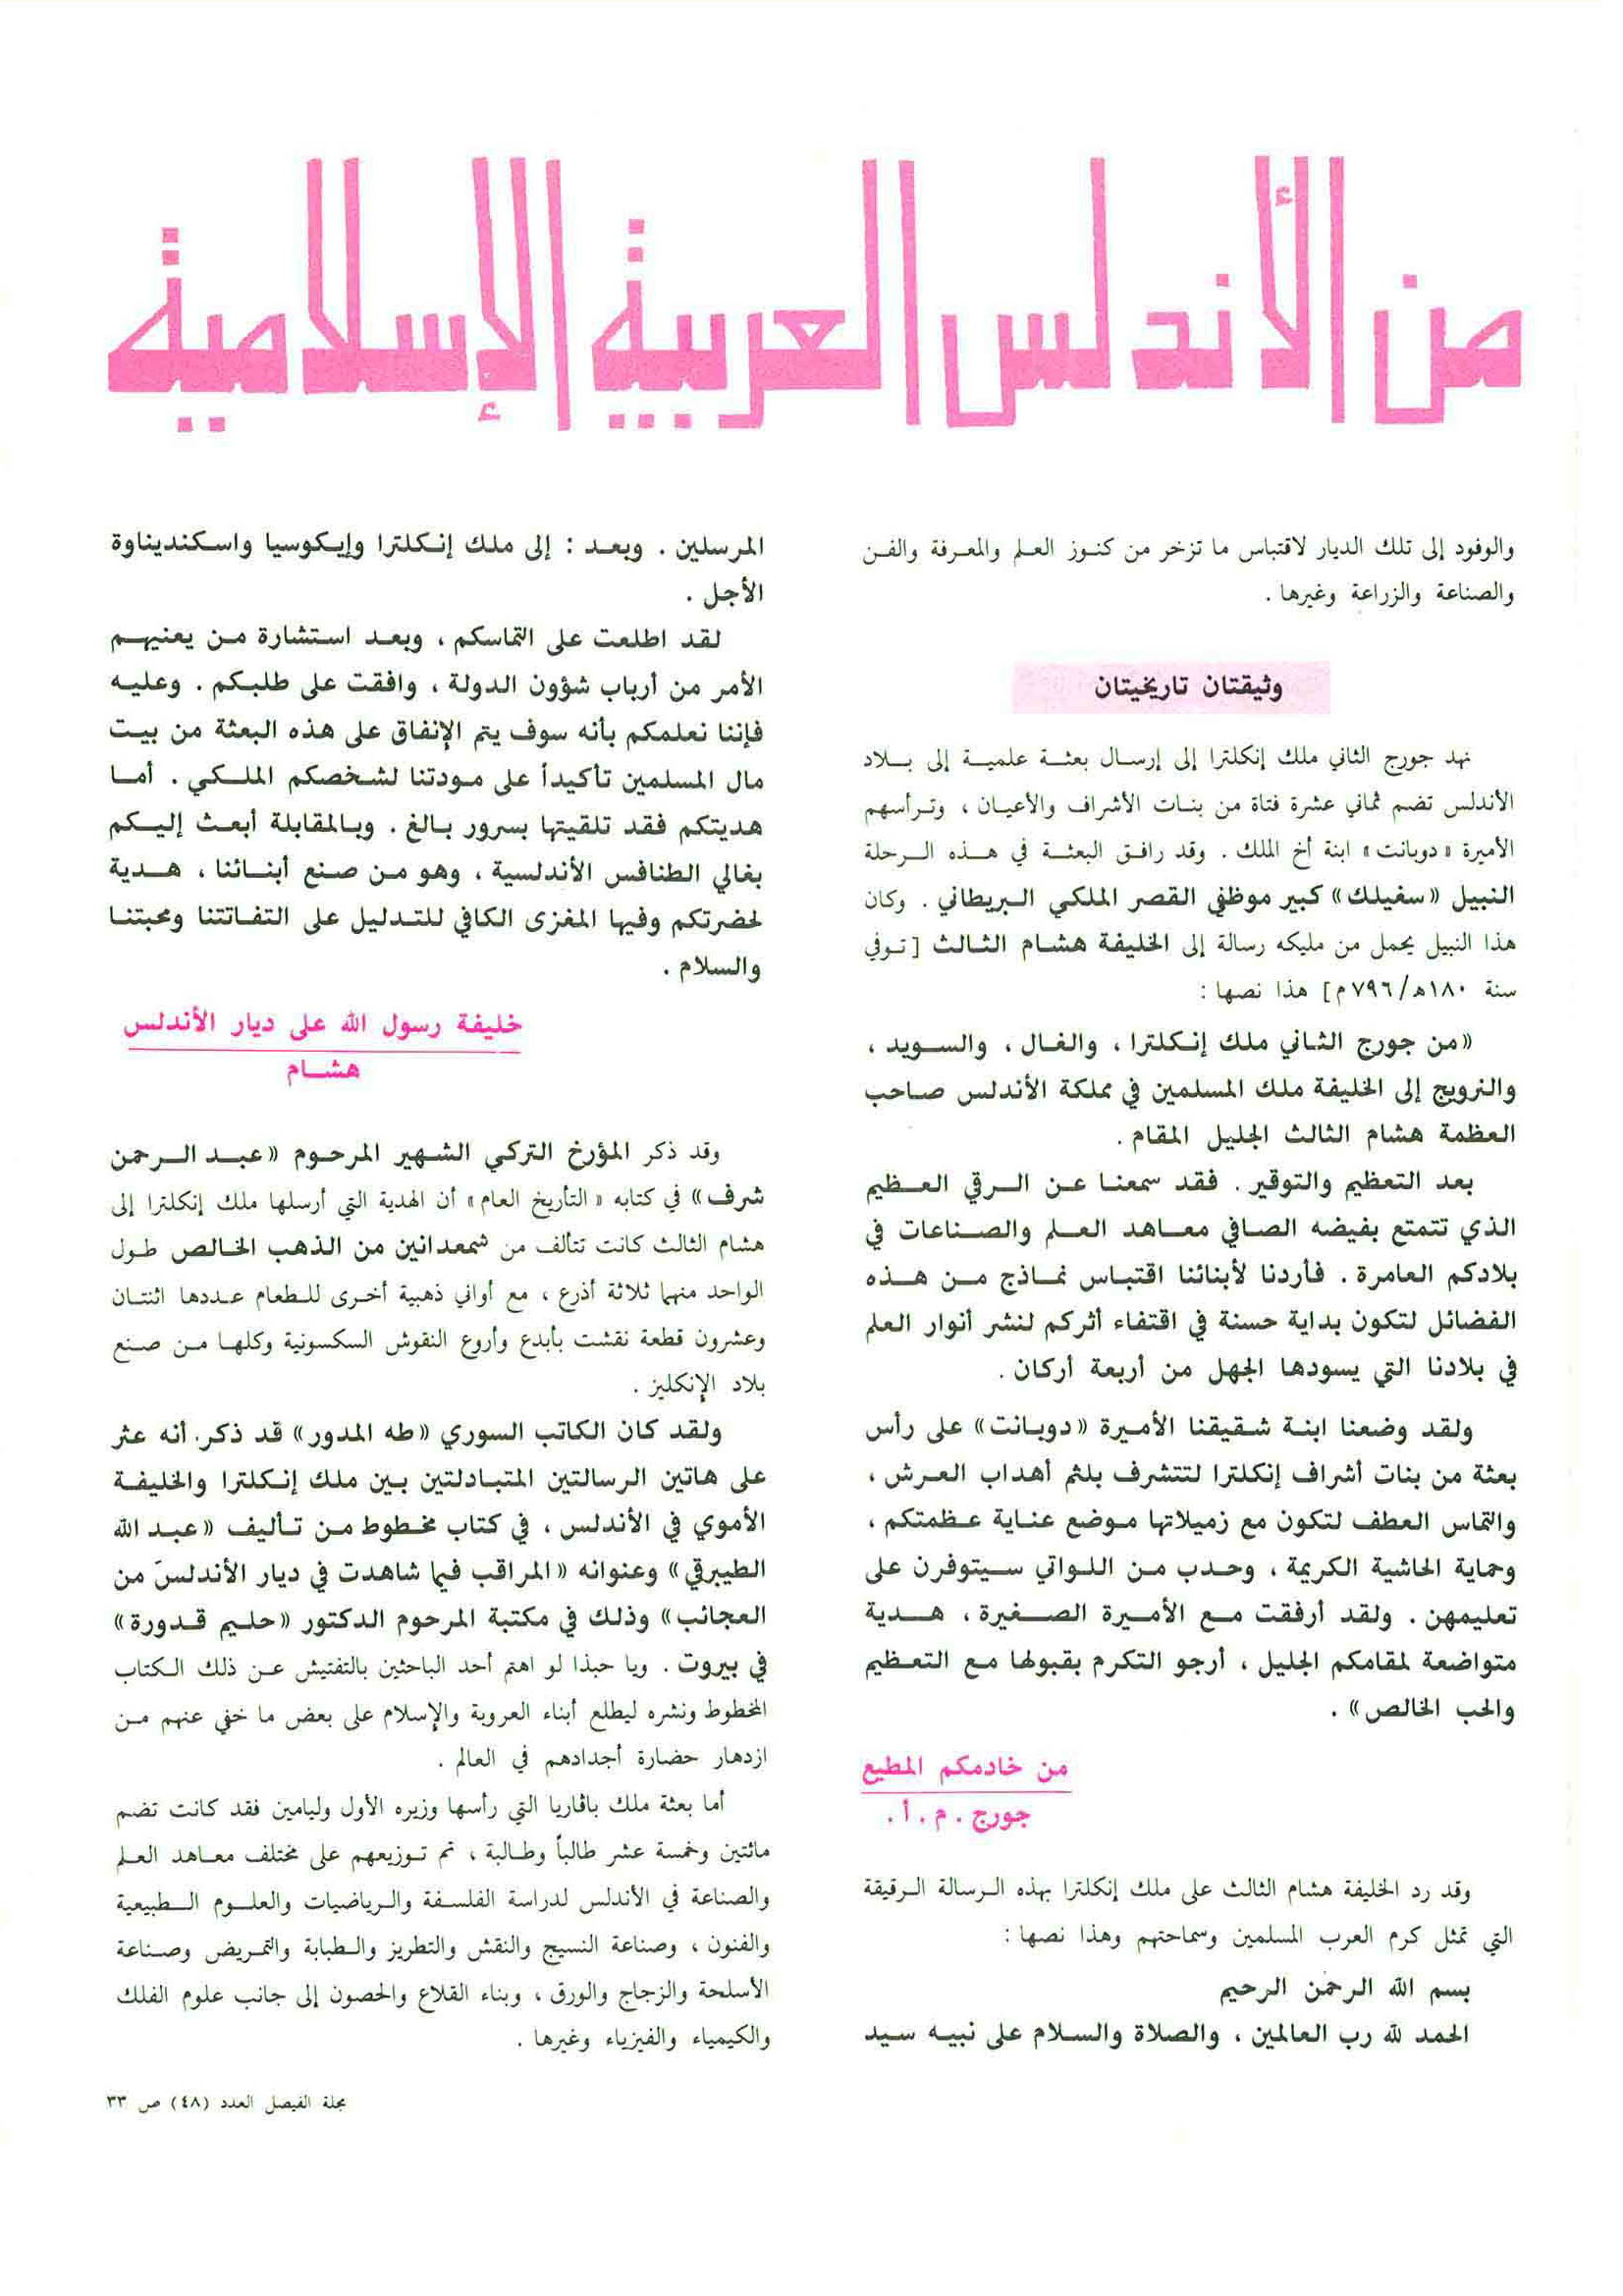 من الأندلس العربية الإسلامية
والوفود إلى تلك الديار لاقتباس ما تزخر من كنوز العلم والمعرفة والفن
والصناعة والزراعة وغيرها .
وثيقتان تاريخيتان
نهد جورج الثاني ملك إنكلترا إلى إرسال بعثة علمية إلى بلاد
الأندلس تضم ثماني عشرة فتاة من بنات الأشراف والأعيان ، وترأسهم
الأميرة «دوبانت» ابنة أخ الملك . وقد رافق البعثة في هذه الرحلة
النبيل «سفيلك» كبير موظفي القصر الملكي البريطاني . وكان
هذا النبيل يحمل من مليكه رسالة إلى الخليفة هشام الثالث [توفي
سنة ١٨٠هـ/٧٩٦م] هذا نصها :
«من جورج الثاني ملك إنكلترا ، والغال ، والسويد ،
والنرويج إلى الخليفة ملك المسلمين في مملكة الأندلس صاحب
العظمة هشام الثالث الجليل المقام .
بعد التعظيم والتوقير . فقد سمعنا عن الرقي العظيم
الذي تتمتع بفيضه الصافي معاهد العلم والصناعات في
بلادكم العامرة . فأردنا لأبنائنا اقتباس نماذج من هذه
الفضائل لتكون بداية حسنة في اقتفاء أثركم لنشر أنوار العلم
في بلادنا التي يسودها الجهل من أربعة أركان .
ولقد وضعنا ابنة شقيقنا الأميرة «دوبانت» على رأس
بعثة من بنات أشراف إنكلترا لتتشرف بلثم أهداب العرش ،
والتماس العطف لتكون مع زميلاتها موضع عناية عظمتكم ،
وحماية الحاشية الكريمة ، وحدب من اللواتي سيتوفرن على
تعليمهن . ولقد أرفقت مع الأميرة الصغيرة ، هدية
متواضعة لمقامكم الجليل ، أرجو التكرم بقبولها مع التعظيم
والحب الخالص» .
من خادمكم المطيع
جورج . م . أ .
وقد رد الخليفة هشام الثالث على ملك إنكلترا بهذه الرسالة الرقيقة
التي تمثل كرم العرب المسلمين وسماحتهم وهذا نصها :
بسم الله الرحمن الرحيم
الحمد لله رب العالمين ، والصلاة والسلام على نبيه سيد
المرسلين . وبعد : إلى ملك إنكلترا وإيكوسيا واسكنديناوة
الأجل .
لقد اطلعت على التماسكم ، وبعد استشارة من يعنيهم
الأمر من أرباب شؤون الدولة ، وافقت على طلبكم . وعليه
فإننا نعلمكم بأنه سوف يتم الإنفاق على هذه البعثة من بيت
مال المسلمين تأكيداً على مودتنا لشخصكم الملكي . أما
هديتكم فقد تلقيتها بسرور بالغ . وبالمقابلة أبعث إليكم
بغالي الطنافس الأندلسية ، وهو من صنع أبنائنا ، هدية
لحضرتكم وفيها المغزى الكافي للتدليل على التفاتتنا ومحبتنا
والسلام .
خليفة رسول الله على ديار الأندلس
هشام
وقد ذكر المؤرخ التركي الشهير المرحوم «عبد الرحمن
شرف» في كتابه «التأريخ العام» أن الهدية التي أرسلها ملك إنكلترا إلى
هشام الثالث كانت تتألف من شمعدانين من الذهب الخالص طول
الواحد منهما ثلاثة أذرع ، مع أواني ذهبية أخرى للطعام عددها اثنتان
وعشرون قطعة نقشت بأبدع وأروع النقوش السكسونية وكلها من صنع
بلاد الإنكليز .
ولقد كان الكاتب السوري «طه المدور» قد ذكر. أنه عثر
على هاتين الرسالتين المتبادلتين بين ملك إنكلترا والخليفة
الأموي في الأندلس ، في كتاب مخطوط من تأليف «عبد الله
الطيبرقي» وعنوانه «المراقب فيما شاهدت في ديار الأندلس من
العجائب» وذلك في مكتبة المرحوم الدكتور «حليم قدورة»
في بيروت . ويا حبذا لو اهتم أحد الباحثين بالتفتيش عن ذلك الكتاب
المخطوط ونشره ليطلع أبناء العروبة والإسلام على بعض ما خفي عنهم من
ازدهار حضارة أجدادهم في العالم .
أما بعثة ملك باڤاريا التي رأسها وزيره الأول وليامين فقد كانت تضم
مائتين وخمسة عشر طالباً وطالبة ، تم توزيعهم على مختلف معاهد العلم
والصناعة في الأندلس لدراسة الفلسفة والرياضيات والعلوم الطبيعية
والفنون ، وصناعة النسيج والنقش والتطريز والطبابة والتمريض وصناعة
الأسلحة والزجاج والورق ، وبناء القلاع والحصون إلى جانب علوم الفلك
والكيمياء والفيزياء وغيرها .
مجلة الفيصل العدد (٤٨) ص ٣٣